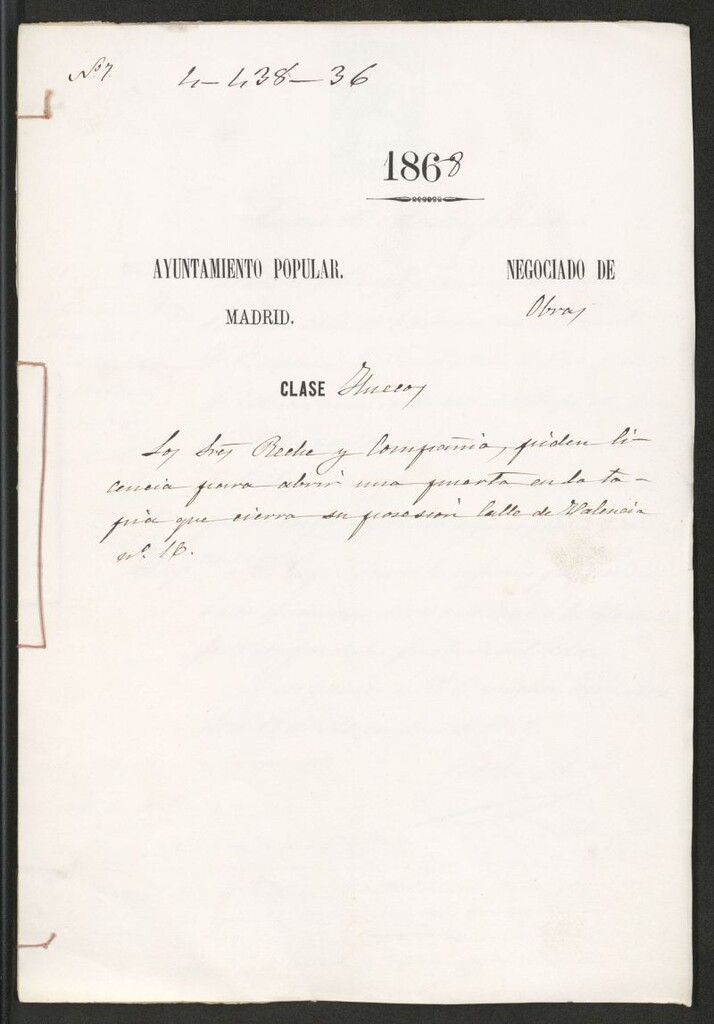 Nº 7. 4-438-36
1868
AYUNTAMIENTO POPULAR. NEGOCIADO DE
MADRID. Obras
CLASE Huecos
Los Sres Reche y Compañia, piden li-
cencia para abrir una puerta en la ta-
pia que cierra su posesion Calle de Valencia
nº.